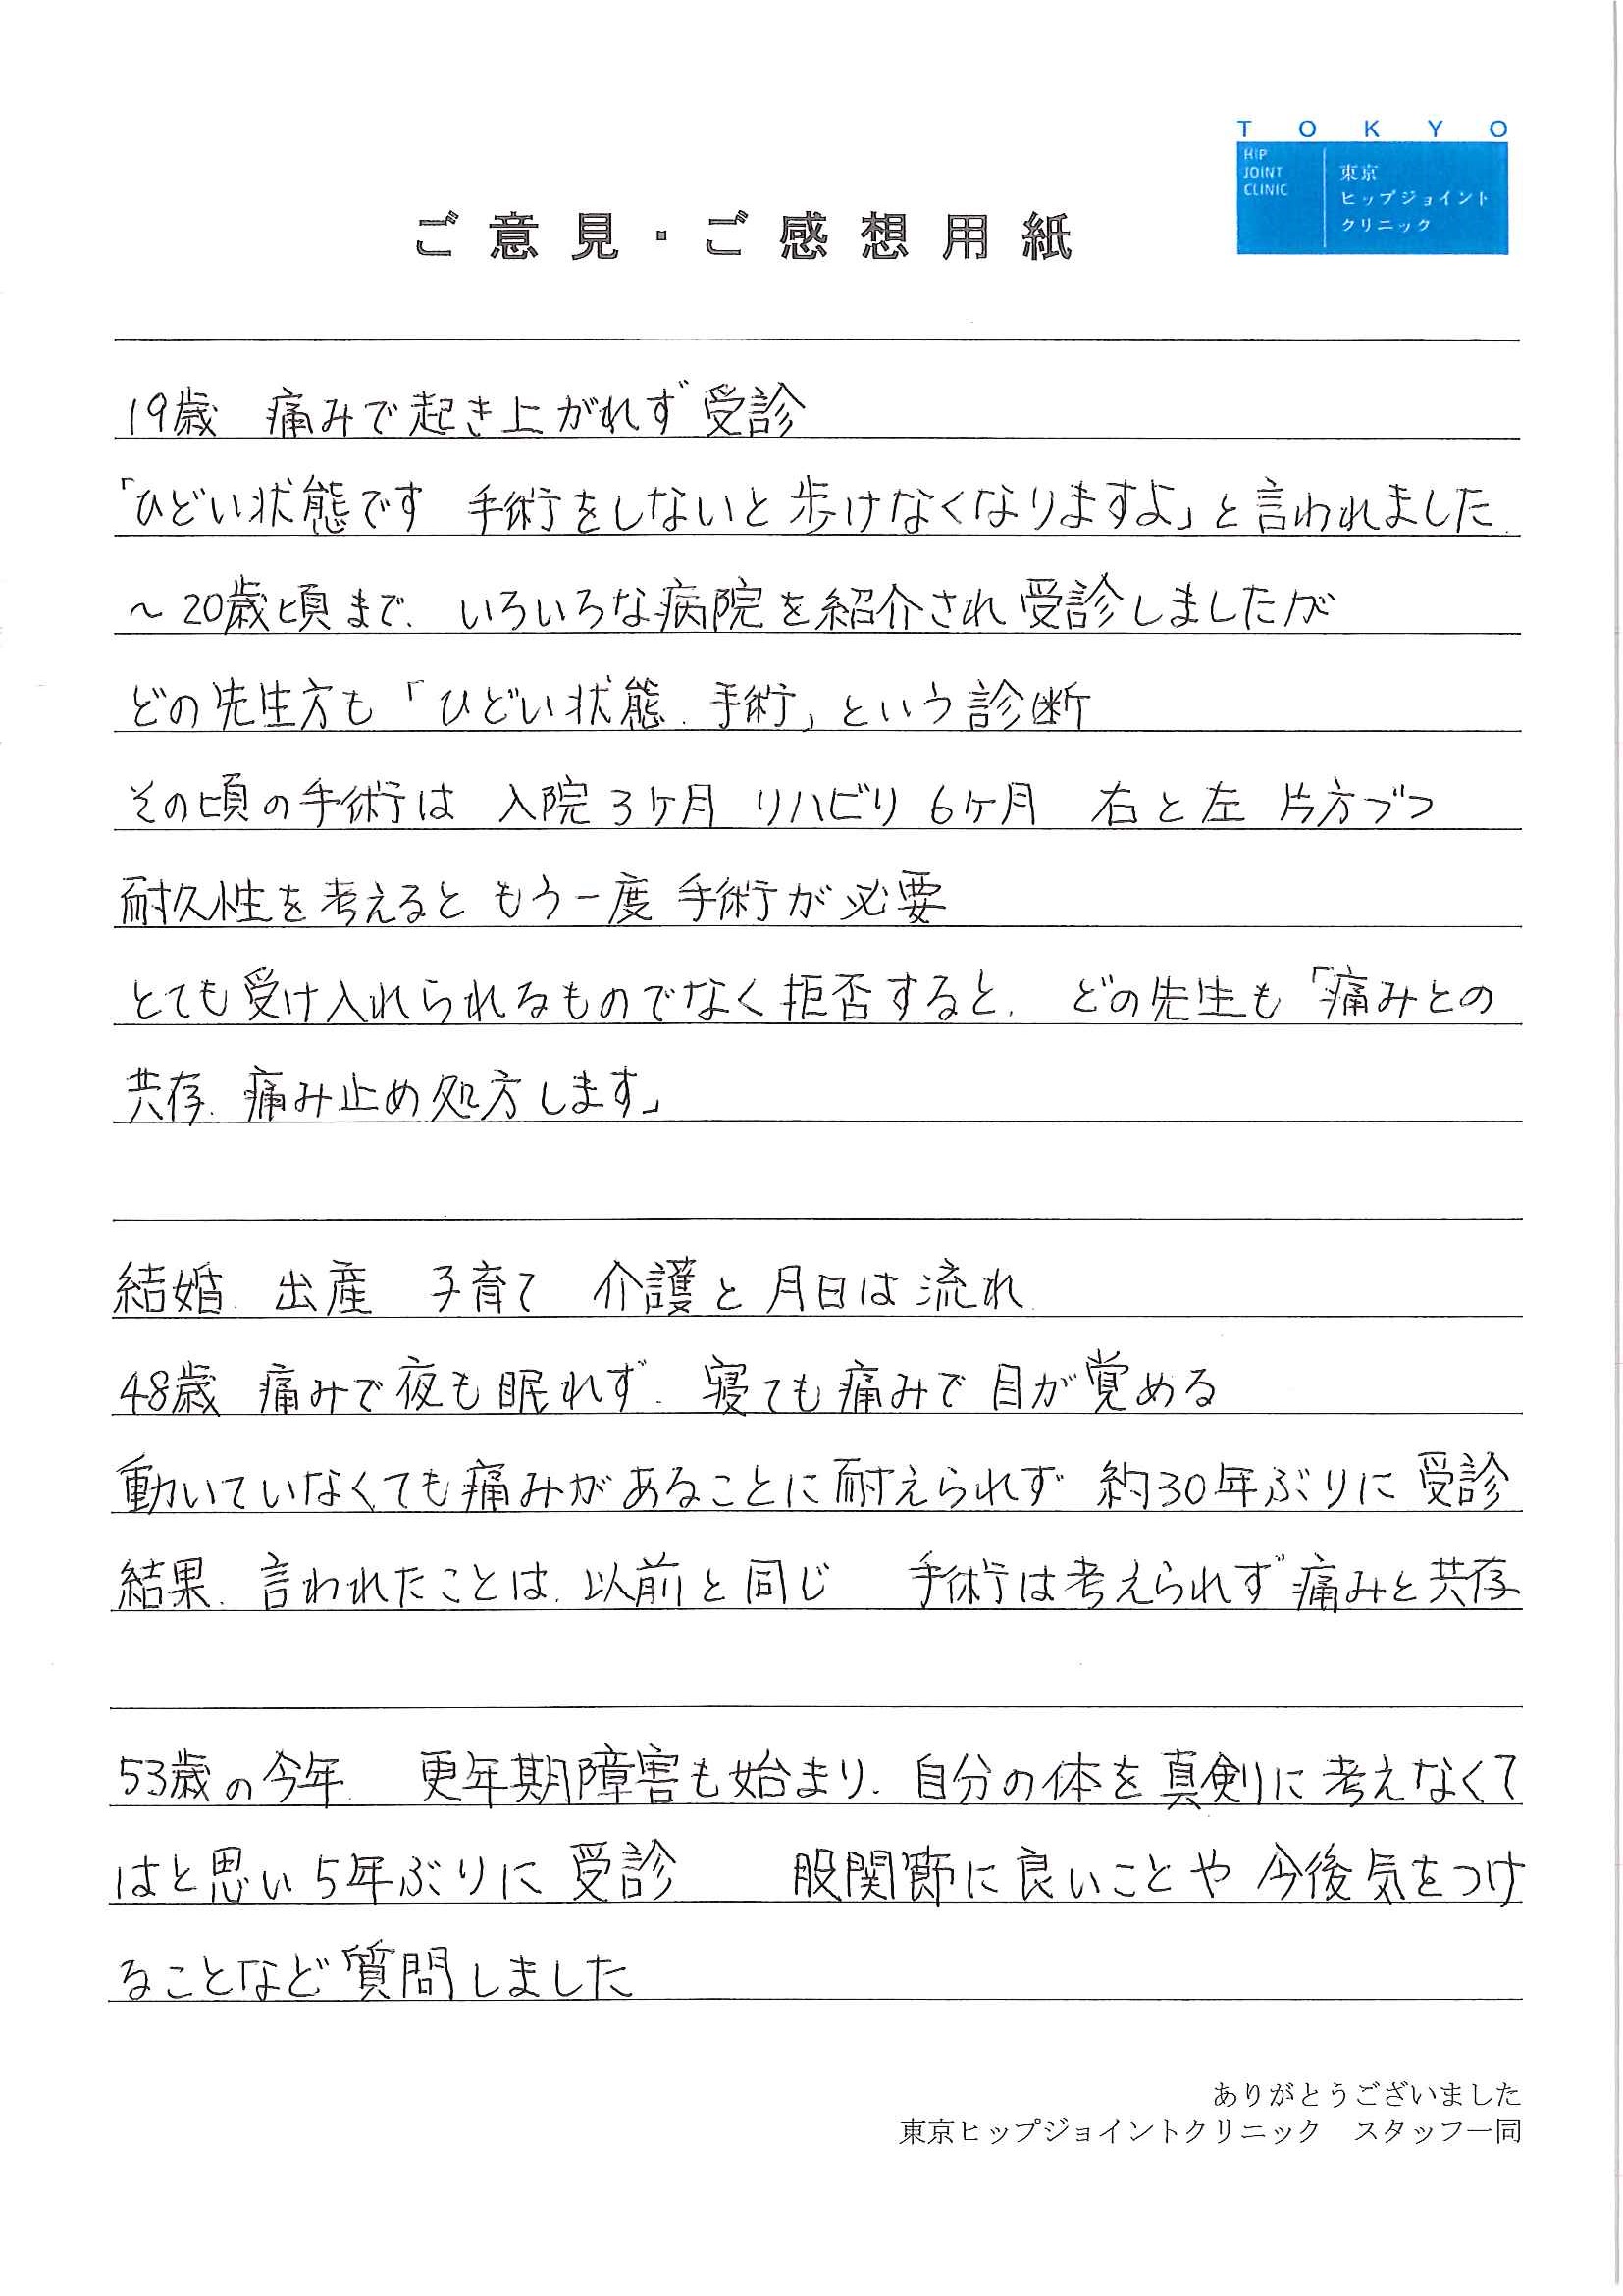 TOKYO
HIP
JOINT
CLINIC
東京
ヒップジョイント
クリニック
ご意見・ご感想用紙
19歳　痛みで起き上がれず 受診
「ひどい状態です　手術をしないと 歩けなくなりますよ」と言われました.
～20歳頃まで、いろいろな病院を紹介され受診しましたが
どの先生方も「ひどい状態、手術」という診断
その頃の手術は　入院3ヶ月　リハビリ 6ヶ月　右と左 片方づつ
耐久性を考えると もう一度 手術が必要
とても受け入れられるものでなく拒否すると、どの先生も「痛みとの
共存、痛み止め処方します」
結婚、出産　子育て　介護と 月日は流れ
48歳 痛みで夜も眠れず、寝ても痛みで目が覚める
動いていなくても痛みがあることに耐えられず 約30年ぶりに 受診
結果、言われたことは、以前と同じ　手術は考えられず 痛みと共存
53歳の今年、更年期障害も始まり、自分の体を真剣に考えなくて
はと思い 5年ぶりに 受診　股関節に良いことや 今後気をつけ
ることなど質問しました
ありがとうございました
東京ヒップジョイントクリニック　スタッフ一同